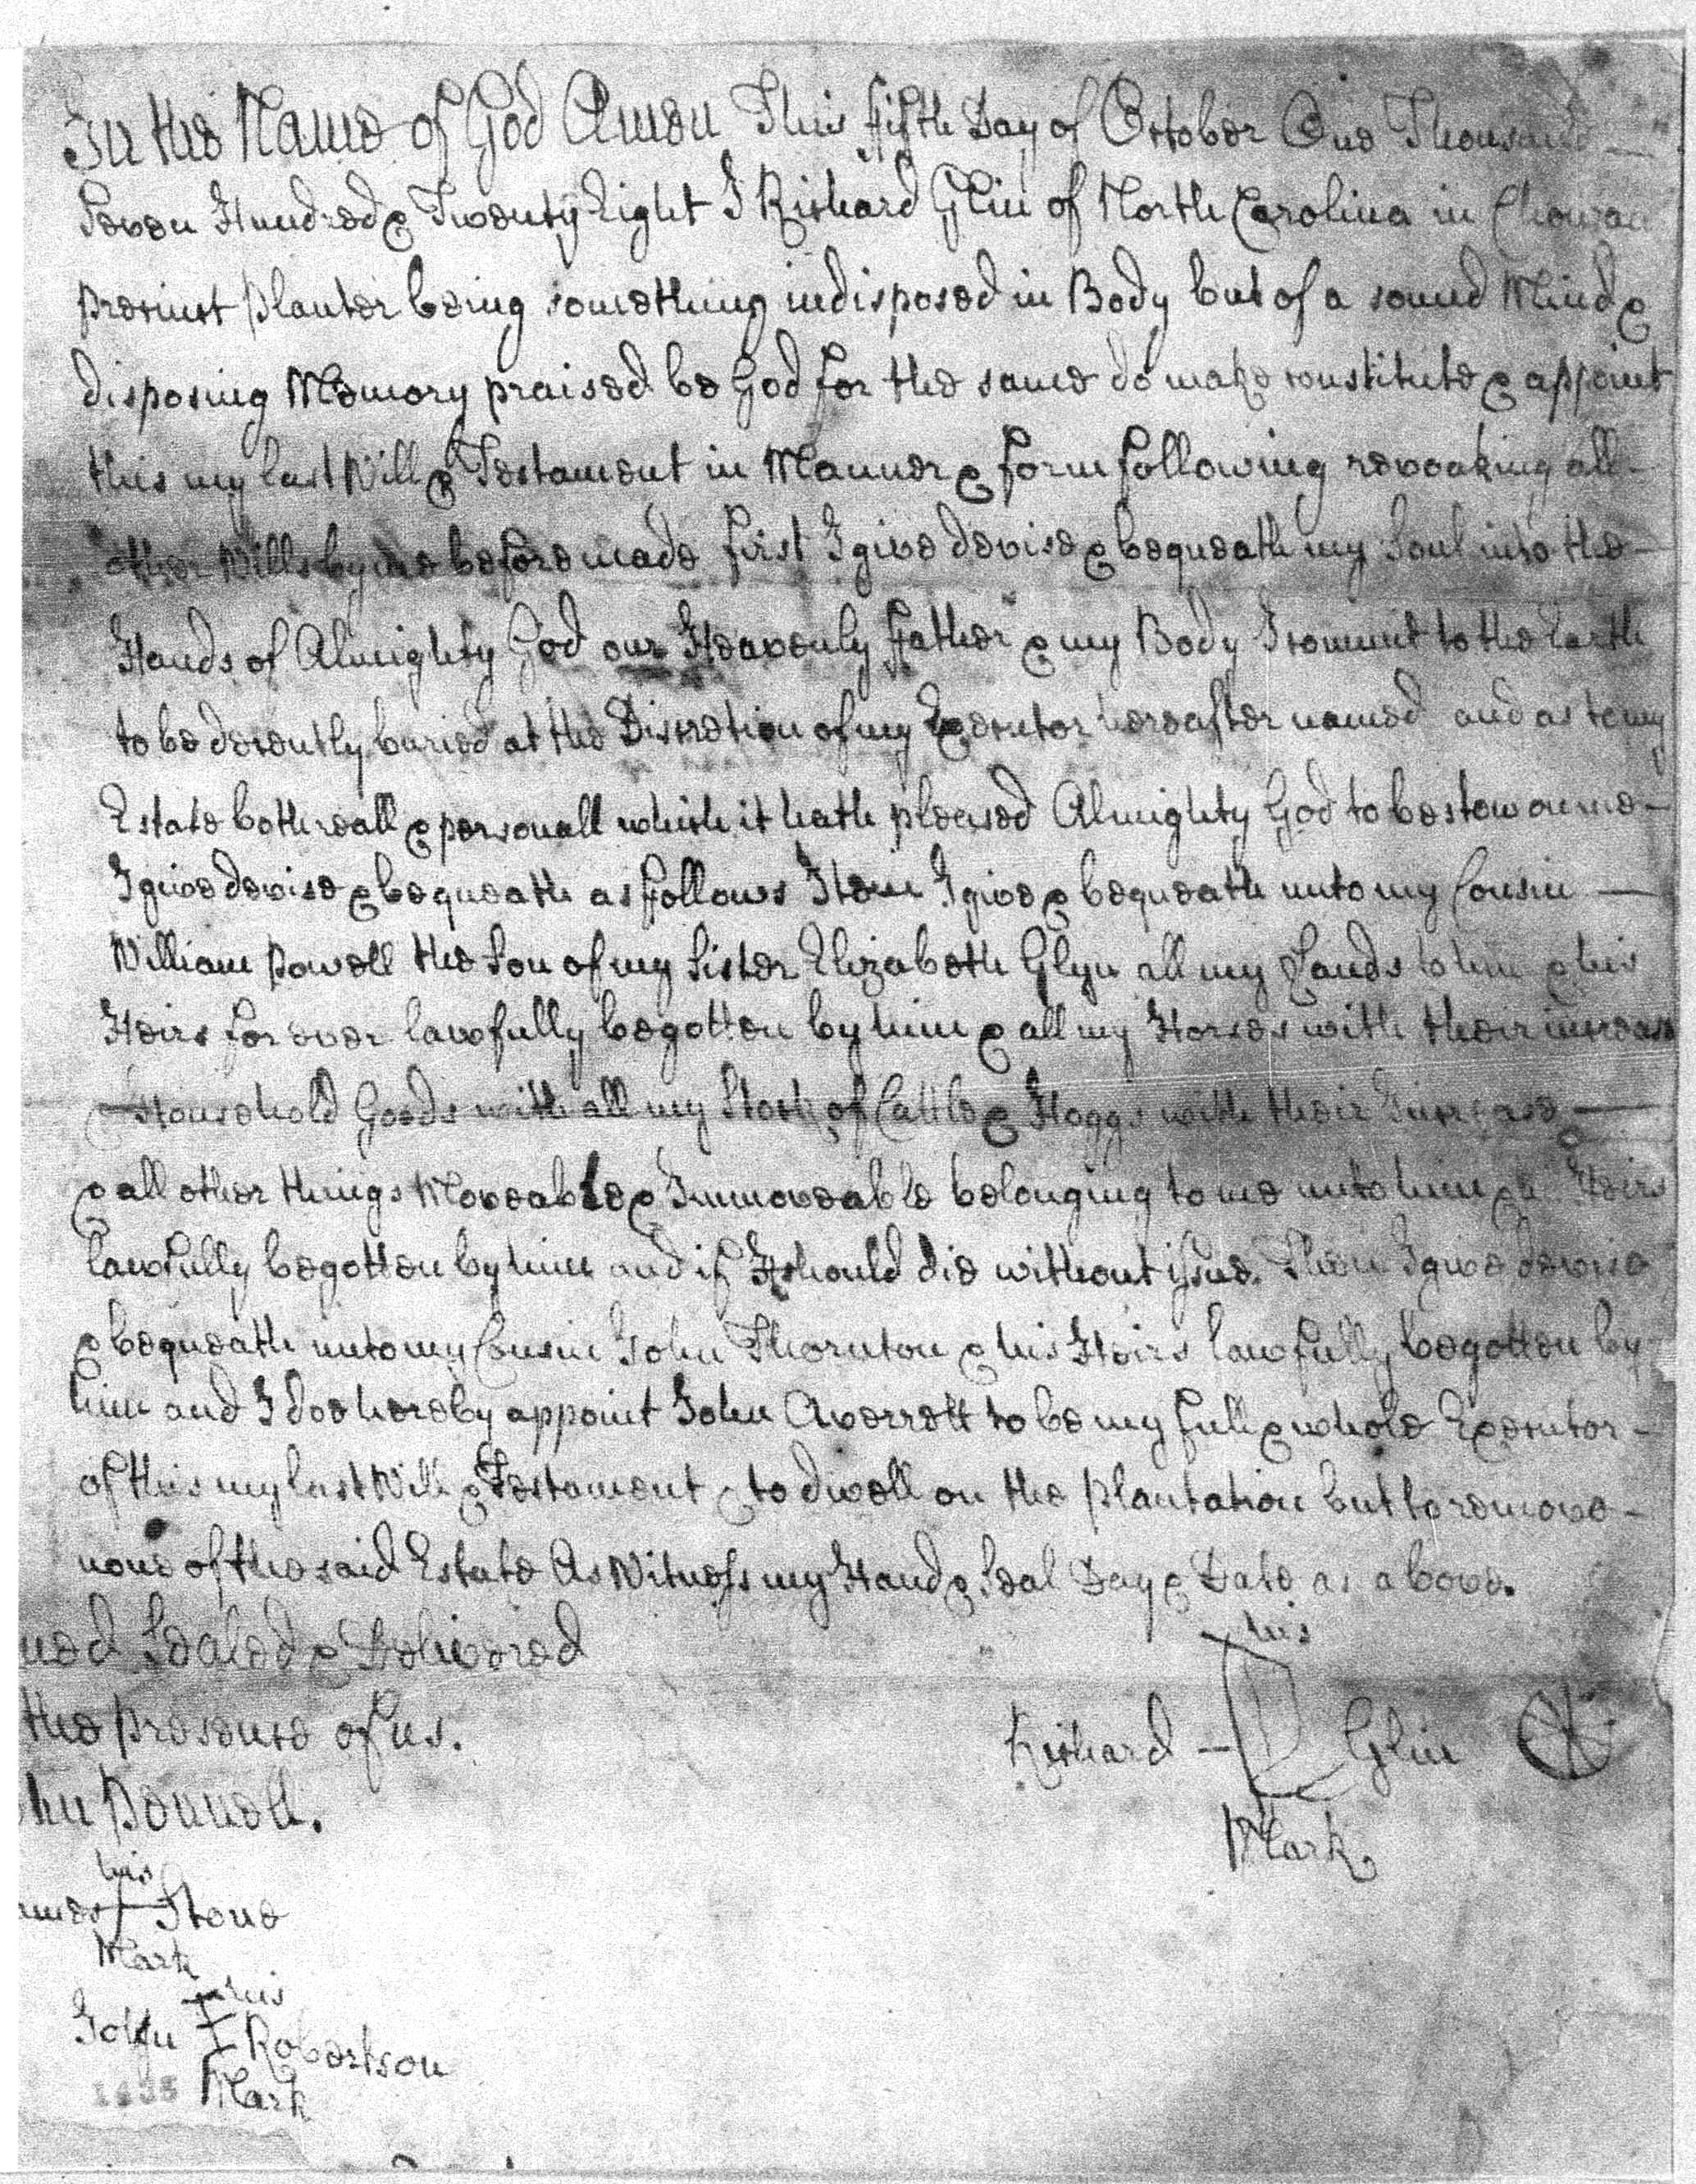 In the Name of God Amen This fifth Day of October One Thousand
Seven Hundred & Twenty Eight I Richard Glin of North Carolina in Chowan
precinct planter being something indisposed in Body but of a sound Mind &
disposing Memory praised be God for the same do make constitute & appoint
this my last Will & Testament in Manner & form following revoaking all
other Wills by me before made first I give devise & bequeath my Soul into the
Hands of Almighty God our Heavenly father & my Body I commit to the Earth
to be decently buried at the Discretion of my Executor hereafter named and as to my
Estate both reall & personall which it hath pleased Almighty God to bestow on me
I give devise & bequeath as follows Item I give & bequeath unto my Cousin
William Powell the Son of my Sister Elizabeth Glyn all my Lands to him & his
Heirs for ever lawfully begotten by him & all my Horses with their increase
& Household Goods with all my Stock of Cattle & Hoggs with their Increase
& all other things Moveable & Immoveable belonging to me unto him & Heirs
lawfully begotten by him and if He should die without issue. Then I give devise
& bequeath unto my Cousin John Thornton & his Heirs lawfully begotten by
him and I doe hereby appoint John Averrett to be my full & whole Executor
of this my last Will & Testament & to dwell on the plantation but to remove
none of the said Estate As Witness my Hand & Seal Day & Date as above.
ned Sealed & Delivered
the presence of us.
his
Richard Glin
Mark
hn Pennell.
his
ames Stone
Mark
his
John Robertson
Mark